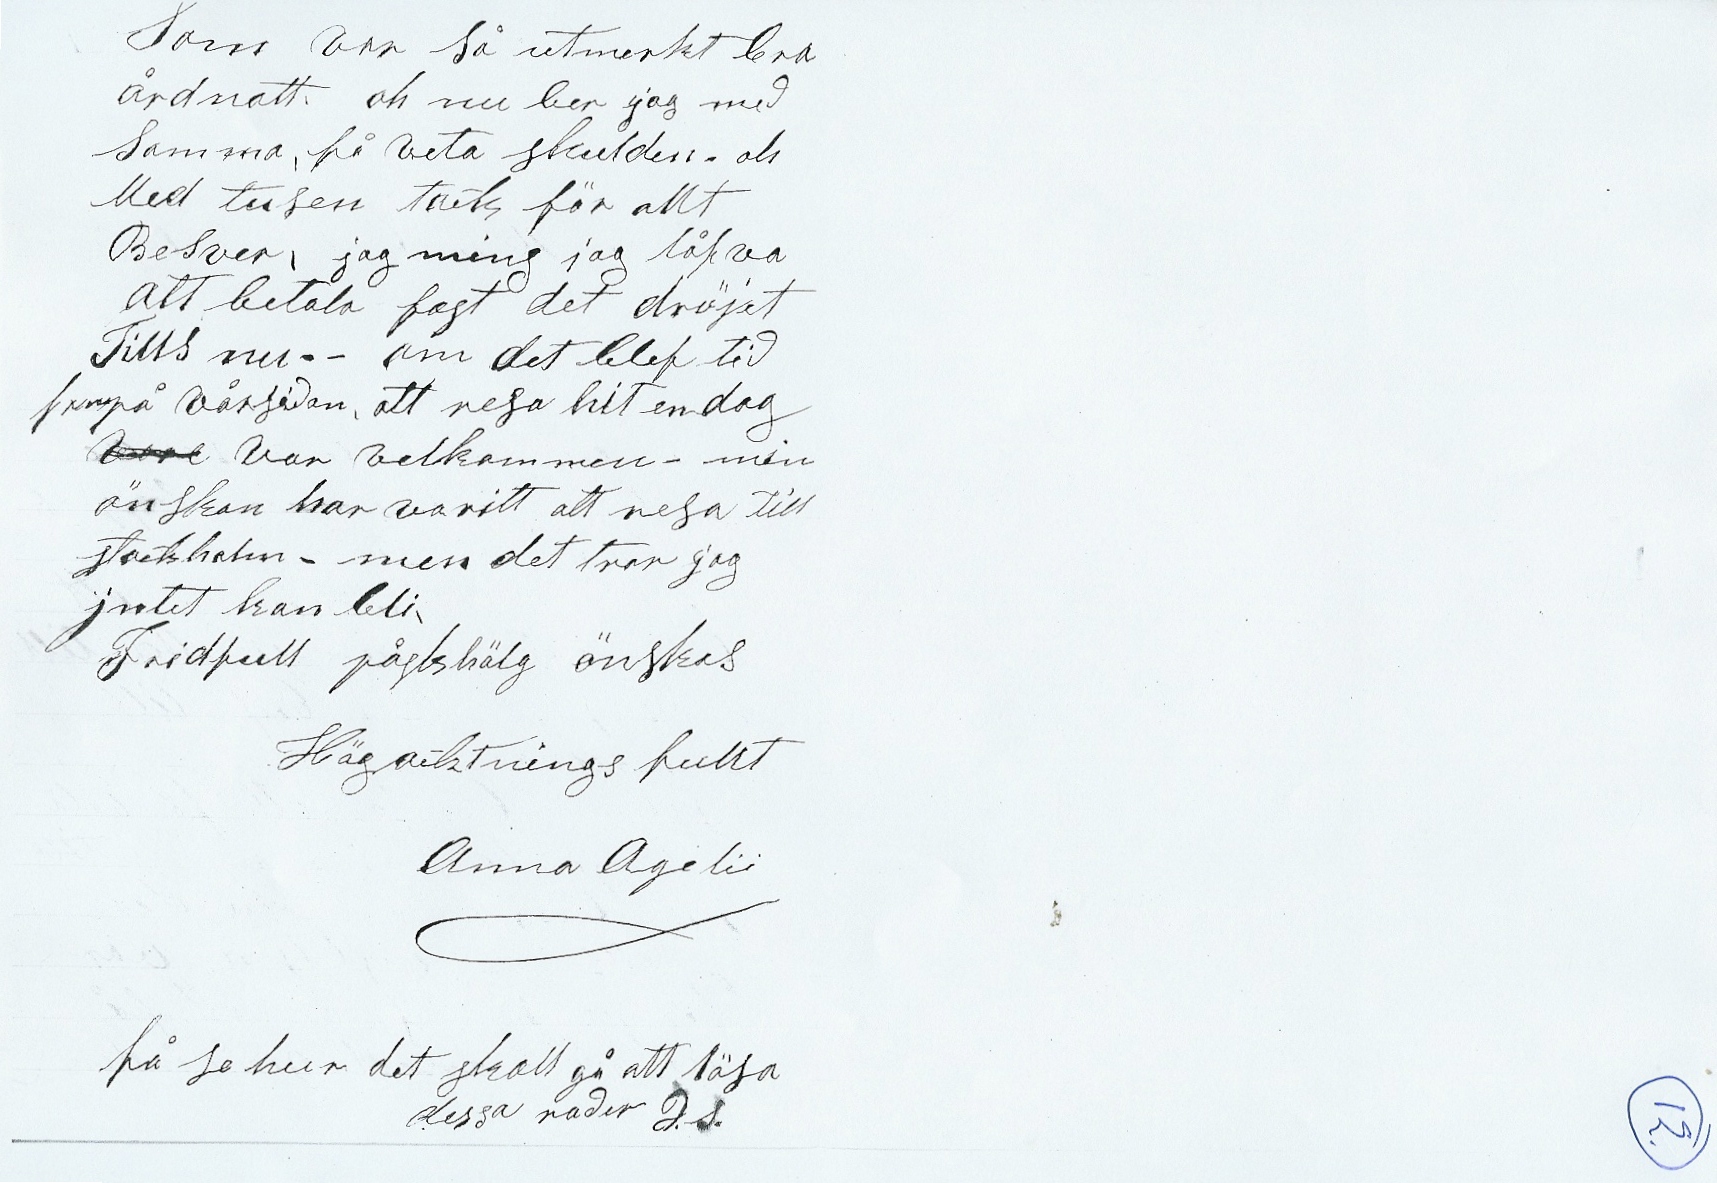 Som var så utmerkt bra
årdnatt. oh nu ber jag med
Samma, få veta skulden. oh
Med tusen tack för allt
Besver, jag ming jag låfva
att betala fast det dröjet
Tills nu. - om det blef tid
frampå vårsidan, att resa hit en dag
var velkommen - min
önskan har varitt att resa till
stockholm - men det tror jag
jntet kan bli,
Fridfull påskhälg önskas
Högacktnings fullt
Anna Agelii
få se hur det skall gå att läsa
dessa rader D.S.
12.